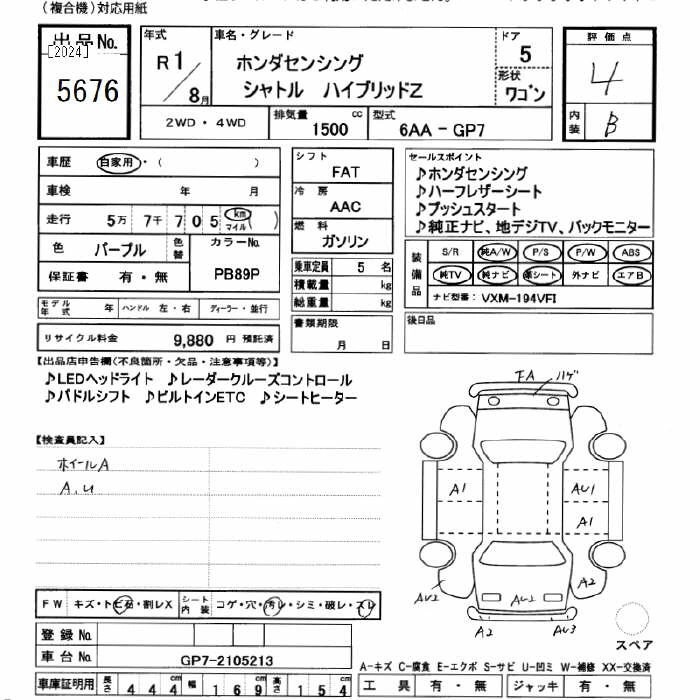 (複合機)対応用紙
出品No.
[2024]
5676
年式
R1/8月
車名・グレード
ホンダセンシング
シャトル ハイブリッドZ
ドア
5
形状
ワゴン
評価点
4
内装
B
2WD・4WD
排気量
1500 cc
型式
6AA-GP7
車歴 自家用・( )
車検 年 月
走行 5万7千705 km マイル ( )
色 パープル 色替
カラーNo.
PB89P
保証書 有・無
モデル年式 年 ハンドル 左・右 ディーラー・並行
リサイクル料金 9,880 円 預託済
シフト
FAT
冷房
AAC
燃料
ガソリン
乗車定員 5 名
積載量 kg
総重量 kg
書類期限
月 日
セールスポイント
♪ホンダセンシング
♪ハーフレザーシート
♪プッシュスタート
♪純正ナビ、地デジTV、バックモニター
装備品
S/R 純A/W P/S P/W ABS
純TV 純ナビ 革シート 外ナビ エアB
ナビ型番: VXM-194VFI
後日品
【出品店申告欄(不良箇所・欠品・注意事項等)】
♪LEDヘッドライト ♪レーダークルーズコントロール
♪パドルシフト ♪ビルトインETC ♪シートヒーター
【検査員記入】
ホイールA
A.U
FA ハゲ
A1
AU1
A1
A2
AU2
AU2
A2
AU3
スペア
FW キズ・トビ石・割レX
シート内装 コゲ・穴・汚レ・シミ・破レ・スレ
登録No.
車台No. GP7-2105213
車庫証明用 長さ 444cm 幅 169cm 高さ 154cm
A-キズ C-腐食 E-エクボ S-サビ U-凹ミ W-補修 XX-交換済
工具 有・無 ジャッキ 有・無